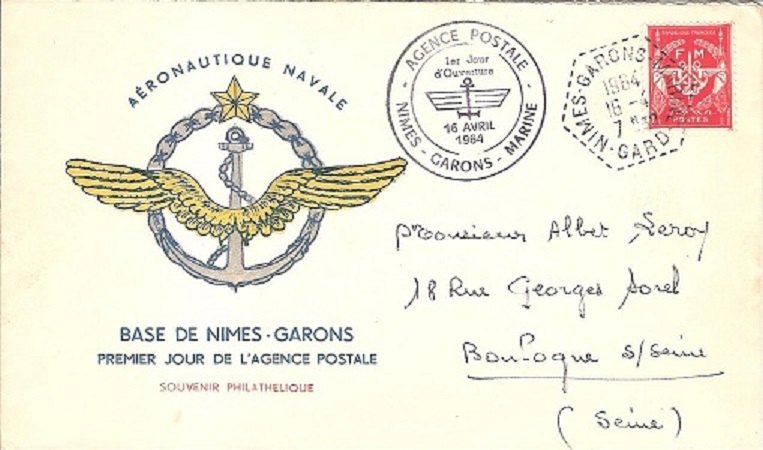 AÉRONAUTIQUE NAVALE
BASE DE NIMES-GARONS
PREMIER JOUR DE L'AGENCE POSTALE
SOUVENIR PHILATHELIQUE
AGENCE POSTALE
1er Jour
d'Ouverture
16 AVRIL
1964
NIMES - GARONS - MARINE
NIMES-GARONS
1964
16 - 4
7
GARD
F M
POSTES
Monsieur Albert Leroy
18 Rue Georges Sorel
Boulogne s/Seine
(Seine)